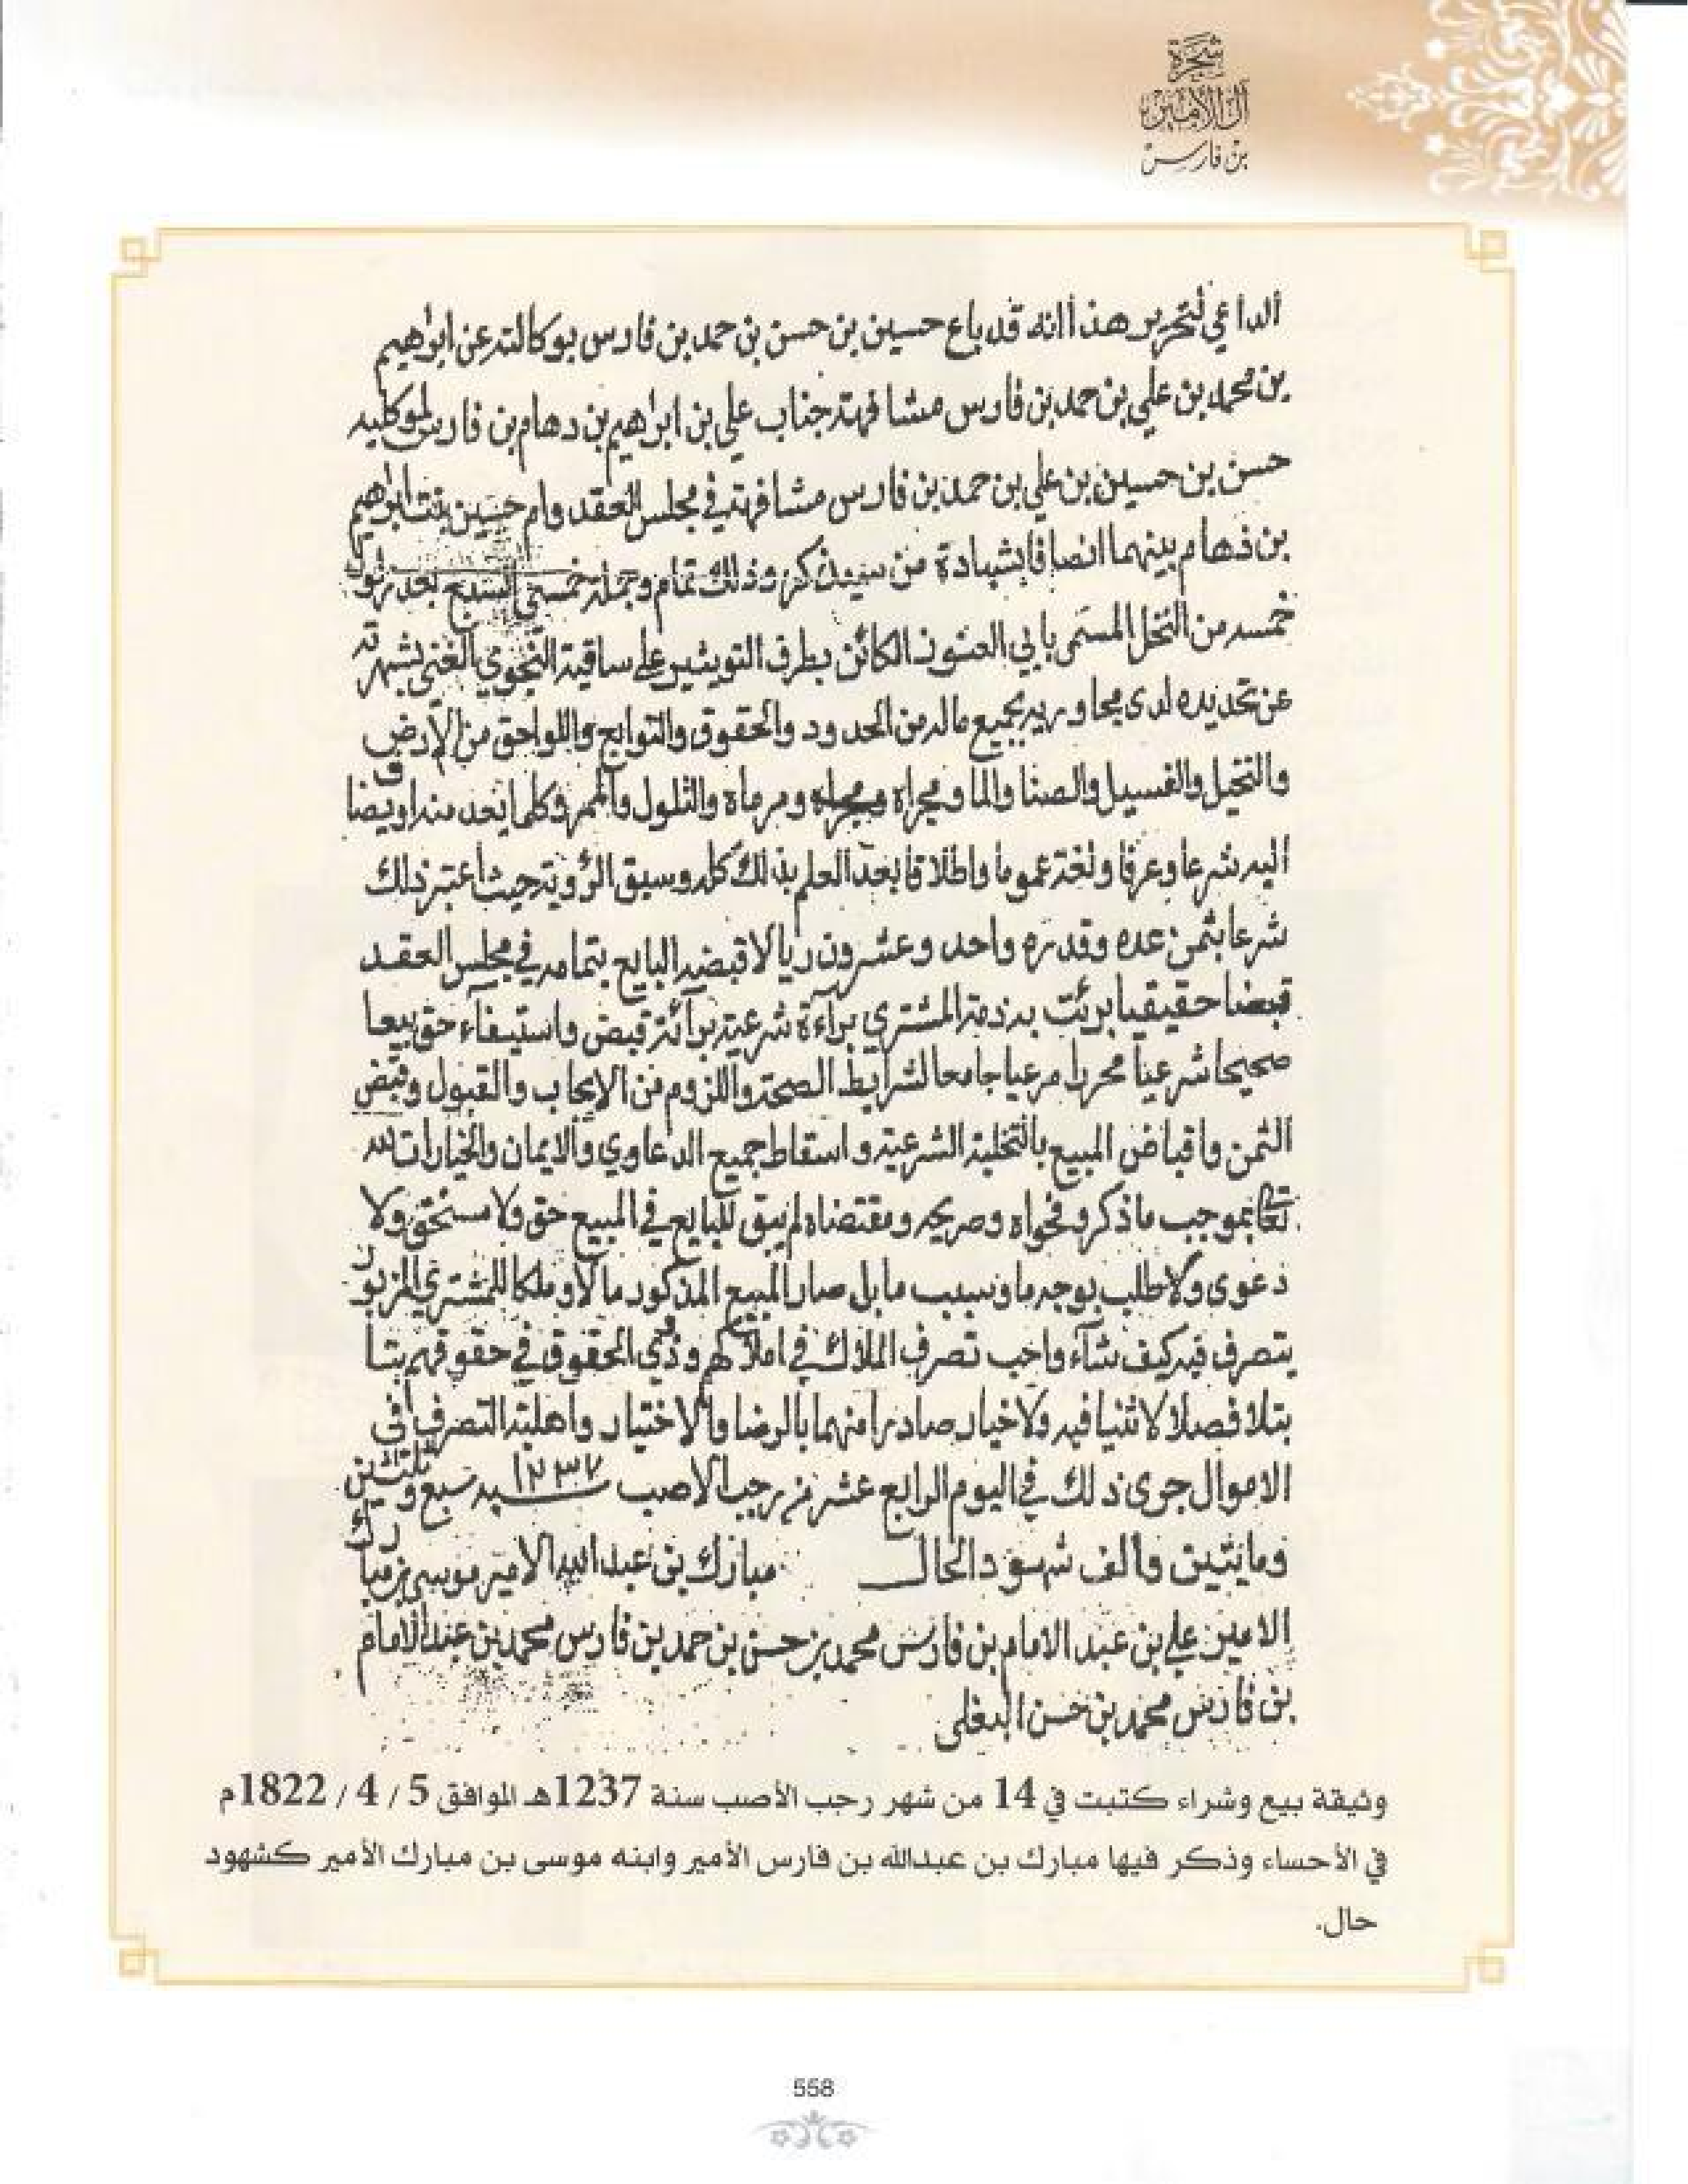 شجرة
آل الأمير
بن فارس
الداعي لتحرير هذا انه قد باع حسين بن حسن بن حمد بن فارس بوكالته عن ابراهيم
بن محمد بن علي بن حمد بن فارس مشافهة جناب علي بن ابراهيم بن دهام بن فارس لموكليه
حسن بن حسين بن علي بن حمد بن فارس مشافهة في مجلس العقد وام حسين بنت ابراهيم
بن دهام بينهما انصافا بشهادة من سيذكر وذلك تمام وجملة خمسي السبع بعد نزول
خمسه من النخل المسمى بابي العنوز الكائن بطرف التويثير على ساقية النجوي الغني بشهرته
عن تحديده لدى مجاوريه بجميع ماله من الحدود والحقوق والتوابع واللواحق من الارض
والنخيل والفسيل والصنا والما ومجراه ومجراه ومرماة والتلول والممر وكلما يعد منه او يضاف
اليه شرعا وعرفا ولغة عموما واطلاقا بعد العلم بذلك كله وسبق الرؤية حيث اعتبر ذلك
شرعا بثمن عده وقدره واحد وعشرون ريالا قبضه البايع بتمامه في مجلس العقد
قبضا حقيقيا برئت به ذمة المشتري براءة شرعية برآئة قبض واستيفاء حق بيعا
صحيحا شرعيا محررا مرعيا جامعا لشرايط الصحة واللزوم من الايجاب والقبول وقبض
الثمن واقباض المبيع بالتخلية الشرعية واسقاط جميع الدعاوي والايمان والخيارات لله
تعا بموجب ما ذكر وفحواه وصريحه ومقتضاه لم يبق للبايع في المبيع حق ولا مستحق ولا
دعوى ولا طلب بوجه ما وسبب ما بل صار المبيع المذكور مالا وملكا للمشتري المزبور
يتصرف فيه كيف شآء واحب تصرف الملاك في املاكهم وذوي الحقوق في حقوقهم بتا
بتلا فصلا لا ثنيا فيه ولا خيار صادرا منهما بالرضا والاختيار واهلية التصرف في
الاموال جرى ذلك في اليوم الرابع عشر من رجب الاصب ١٢٣٧ سنة سبع وثلاثين
ومايتين والف شهود الحال مبارك بن عبد الله الامير موسى بن مبارك
الامير علي بن عبد الامام بن فارس محمد بن حسن بن حمد بن فارس محمد بن عبد الامام
بن فارس محمد بن حسن البغلي
وثيقة بيع وشراء كتبت في 14 من شهر رجب الأصب سنة 1237هـ الموافق 5 / 4 / 1822م
في الأحساء وذكر فيها مبارك بن عبدالله بن فارس الأمير وابنه موسى بن مبارك الأمير كشهود
حال.
558